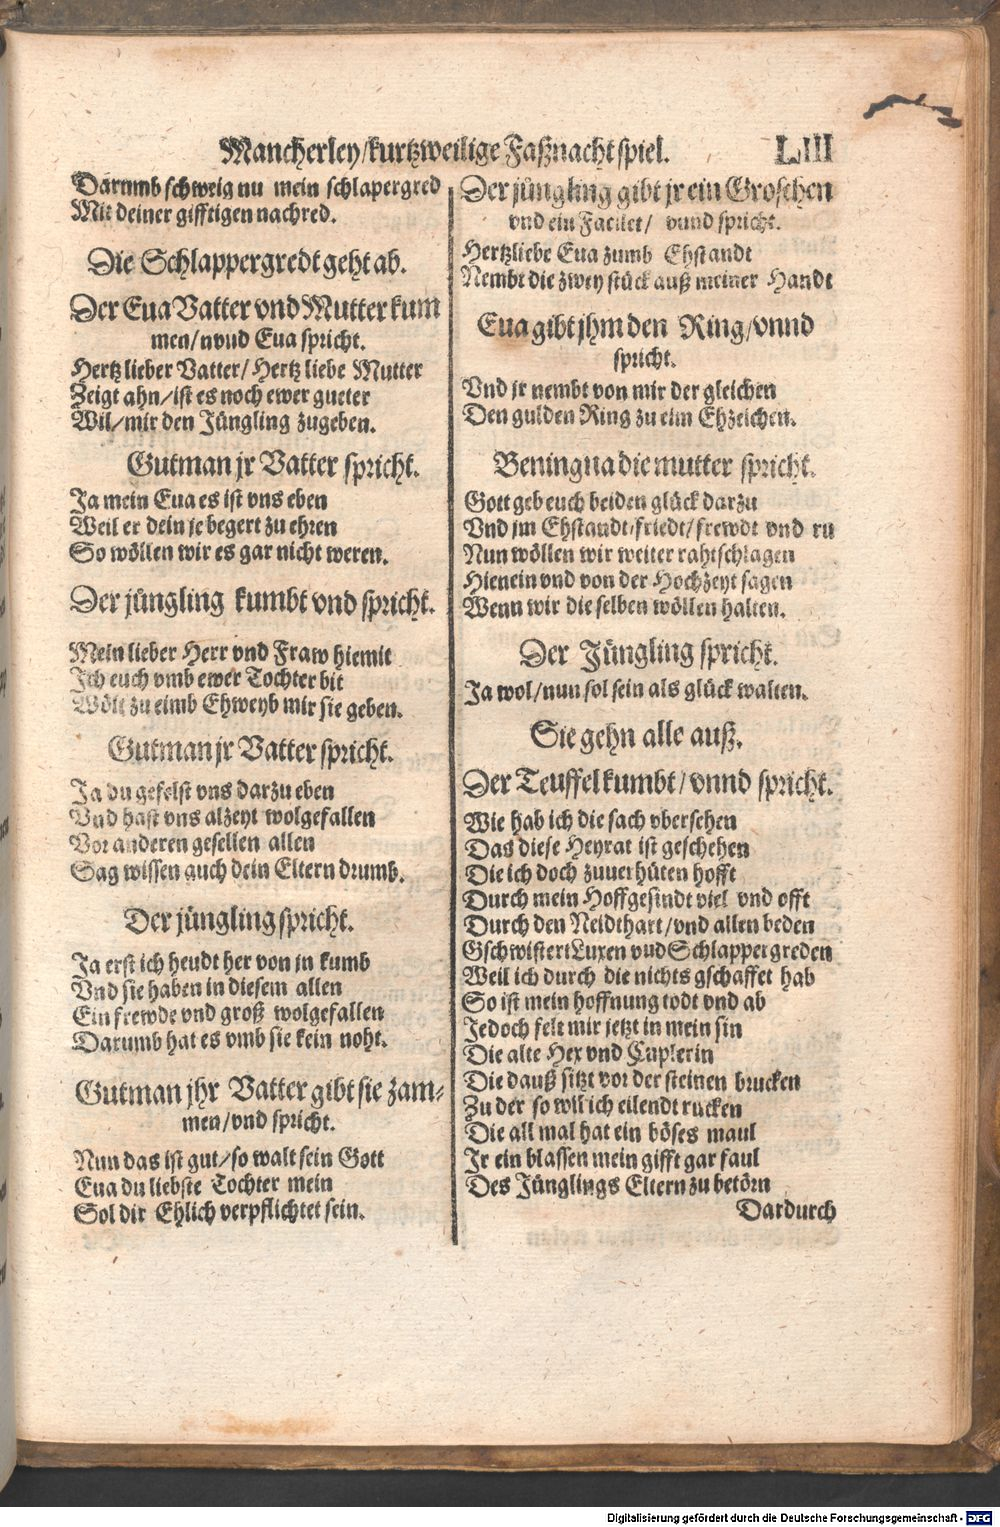 Mancherley/kurtzweilige Faßnacht spiel. LIII
Darumb schweig nu mein schlapergred
Mit deiner gifftigen nachred.
Die Schlappergredt geht ab.
Der Eua Vatter vnd Mutter kum
men/vnnd Eua spricht.
Hertz lieber Vatter/ Hertz liebe Mutter
Zeigt ahn/ist es noch ewer gueter
Wil/mir den Jüngling zugeben.
Gutman jr Vatter spricht.
Ja mein Eua es ist vns eben
Weil er dein je begert zu ehren
So wöllen wir es gar nicht weren.
Der jüngling kumbt vnd spricht.
Mein lieber Herr vnd Fraw hiemit
Ich euch vmb ewer Tochter bit
Wölt zu eimb Ehweyb mir sie geben.
Gutman jr Vatter spricht.
Ja du gefelst vns darzu eben
Vnd hast vns alzeyt wolgefallen
Vor anderen gesellen allen
Sag wissen auch dein Eltern drumb.
Der jüngling spricht.
Ja erst ich heudt her von jn kumb
Vnd sie haben in diesem allen
Ein frewde vnd groß wolgefallen
Darumb hat es vmb sie kein noht.
Gutman jhr Vatter gibt sie zam-
men/vnd spricht.
Nun das ist gut/so walt sein Gott
Eua du liebste Tochter mein
Sol dir Ehlich verpflichtet sein.
Der jüngling gibt jr ein Groschen
vnd ein Facilet/ vnnd spricht.
Hertzliebe Eua zumb Ehstandt
Nembt die zwey stück auß meiner Handt
Eua gibt jhm den Ring/vnnd
spricht.
Vnd jr nembt von mir der gleichen
Den gulden Ring zu eim Ehzeichen.
Beningna die mutter spricht.
Gott geb euch beiden glück darzu
Vnd jm Ehstandt/friedt/frewdt vnd ru
Nun wöllen wir weiter rahtschlagen
Hienein vnd von der Hochzeyt sagen
Wenn wir die selben wöllen halten.
Der Jüngling spricht.
Ja wol/nun sol sein als glück walten.
Sie gehn alle auß.
Der Teuffel kumbt/vnnd spricht.
Wie hab ich die sach vbersehen
Das diese Heyrat ist geschehen
Die ich doch zuuerhüten hofft
Durch mein Hoffgesindt viel vnd offt
Durch den Neidthart/vnd allen beden
Gschwistert Luxen vnd Schlappergreden
Weil ich durch die nichts gschaffet hab
So ist mein hoffnung todt vnd ab
Jedoch felt mir jetzt in mein sin
Die alte Hex vnd Cuplerin
Die dauß sitzt vor der steinen brucken
Zu der so wil ich eilendt rucken
Die all mal hat ein böses maul
Jr ein blassen mein gifft gar faul
Des Jünglings Eltern zu betörn
Dardurch
Digitalisierung gefördert durch die Deutsche Forschungsgemeinschaft - DFG